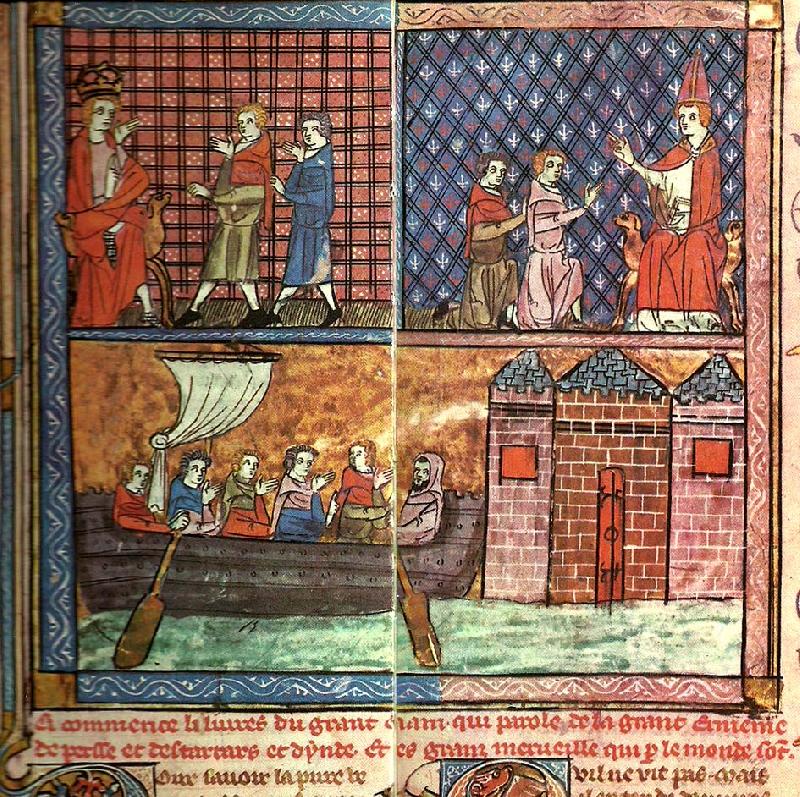 Ci commence li liures du grant caam qui parole de la grant ermenie
de persse et des tartars et dynde. Et des granz merueille qui p le monde sot.
Our sauoir la pure ve
uil ne vit pas. mais